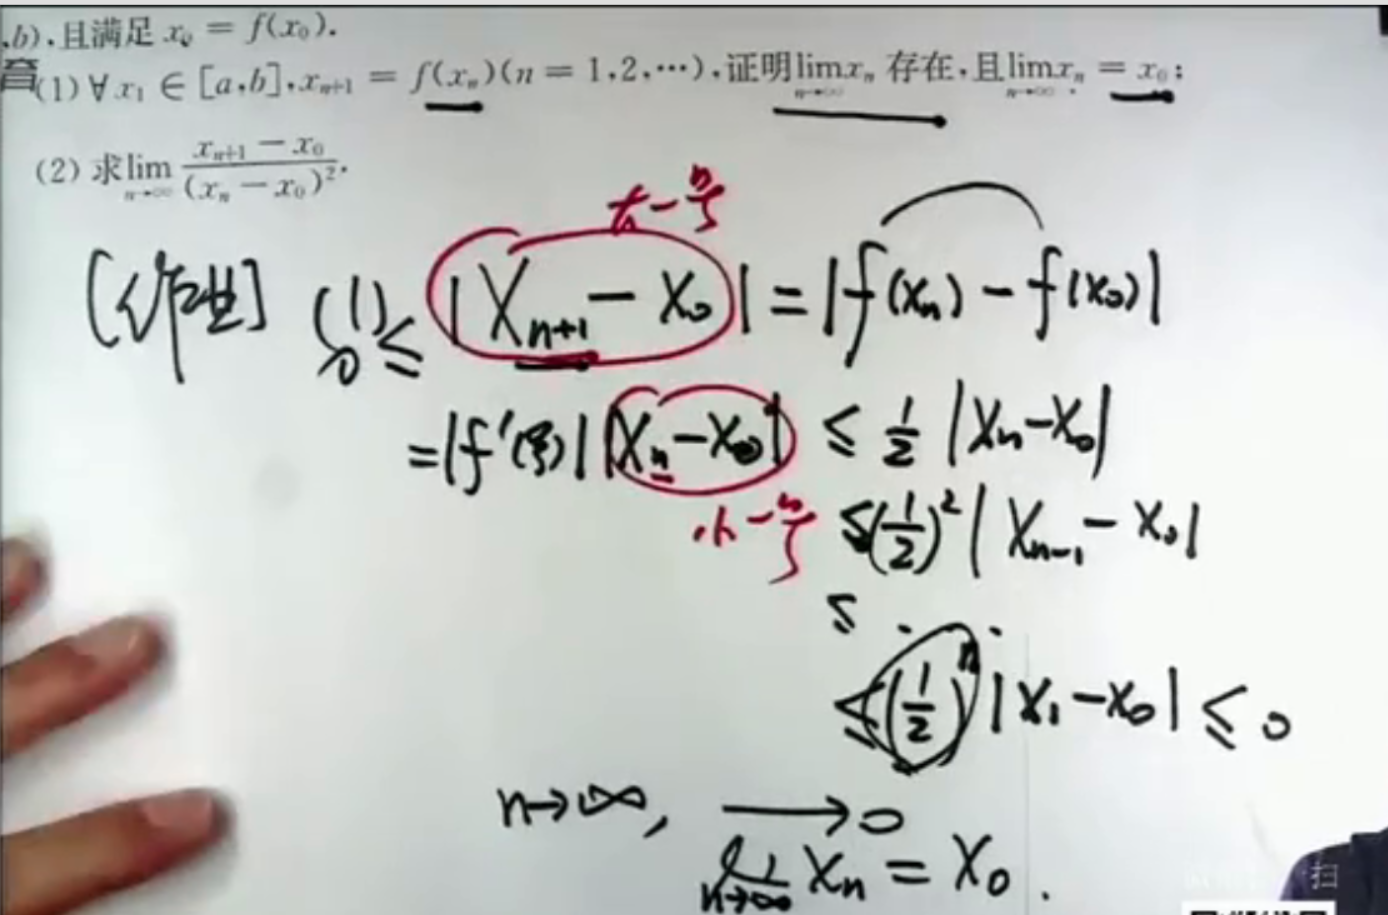 ,b),且满足 x₀ = f(x₀).
育
(1) ∀ x₁ ∈ [a,b], xₙ₊₁ = f(xₙ)(n = 1,2,⋯),证明 lim_{n→∞} xₙ 存在,且 lim_{n→∞} xₙ = x₀;
(2) 求 lim_{n→∞} (xₙ₊₁ − x₀)/(xₙ − x₀)².
大一号
(1) 0 ≤ |Xₙ₊₁ − X₀| = |f(Xₙ) − f(X₀)|
= |f′(ξ)| |Xₙ − X₀| ≤ 1/2 |Xₙ − X₀|
小一号
≤ (1/2)² |Xₙ₋₁ − X₀|
≤ . .
≤ (1/2)ⁿ |X₁ − X₀| ≤ 0
n→∞, ⟶ 0
lim_{n→∞} Xₙ = X₀.